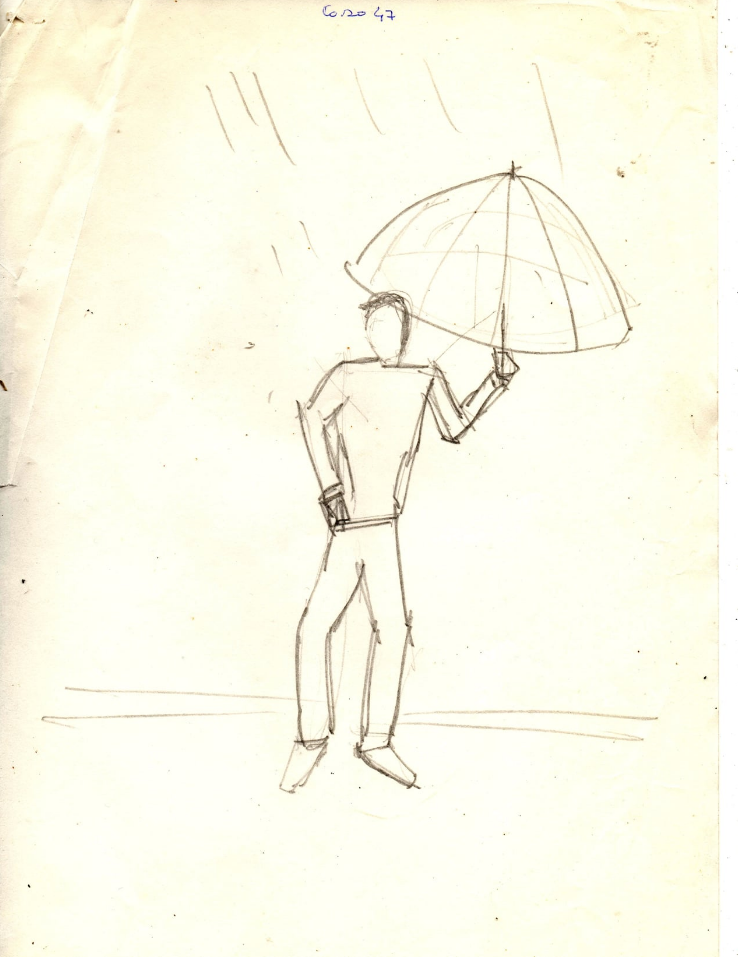 Caso 47